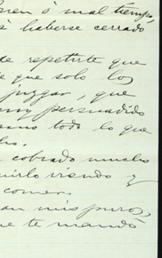 bien á mal tiempo,
á haberse cerrado
de repetirte que
que solo los
juzgar, que
muy persuadido
todo lo que
cobrado mucho
viendo y
comer.
mis puros,
que te mandó